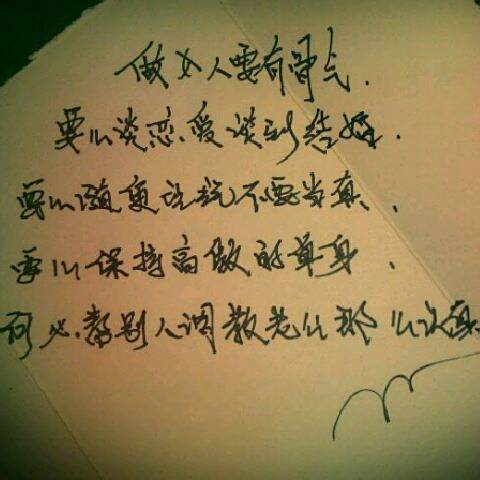 做女人要有骨气.
要么谈恋爱谈到结婚.
要么随便玩玩不要当真.
要么保持高傲的单身.
何必.教别人调教老公那么认真